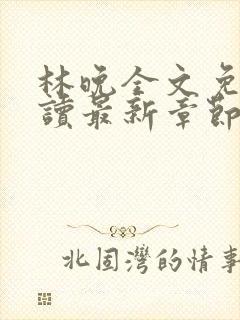 林晚全文免
讀最新章節
北固灣的情事